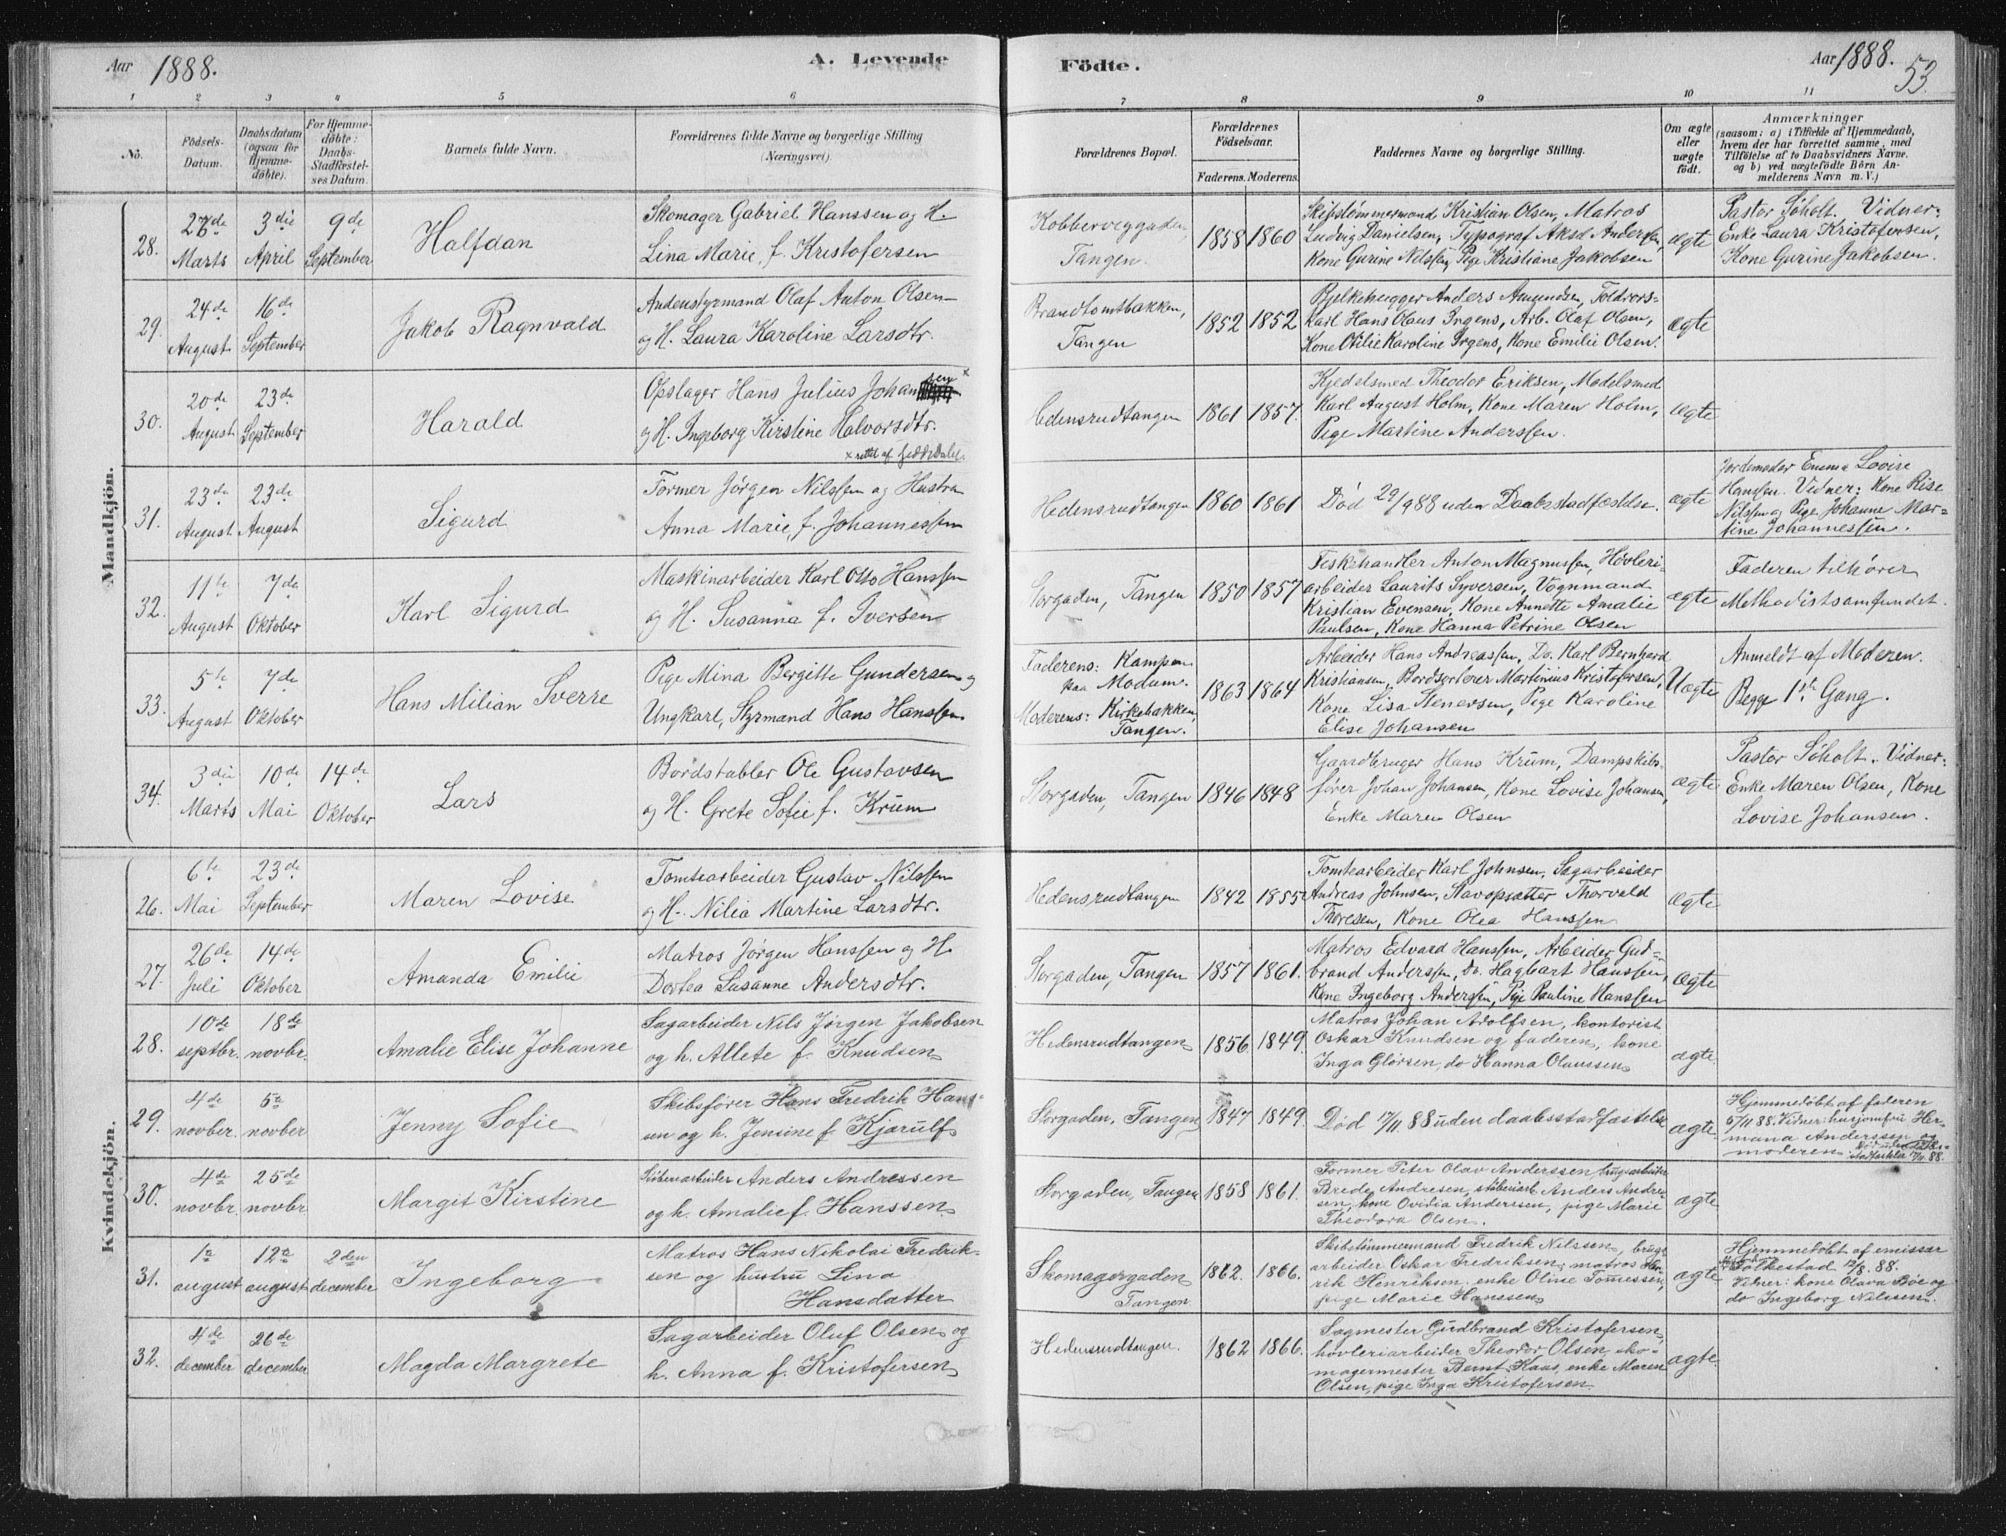 Aar 1888.
A. Levende
Födte.
Aar 1888.
53.
1 2 3 4 5 6 7 8 9 10 11
No.
Födsels-
Datum.
Daabsdatum
(ogsaa for
Hjemme-
döbte).
For Hjemme-
döbte:
Daabs-
Stadfæstel-
ses Datum.
Barnets fulde Navn.
Forældrenes fulde Navne og borgerlige Stilling
(Næringsvei).
Forældrenes Bopæl.
Forældrenes
Födselsaar.
Faderens. Moderens.
Faddernes Navne og borgerlige Stilling.
Om ægte
eller
uægte
födt.
Anmærkninger
(saasom: a) i Tilfælde af Hjemmedaab,
hvem der har forrettet samme, med
Tilföielse af to Daabsvidners Navne.
og b) ved uægtefödte Börn An-
melderens Navn m. V.)
Mandkjön.
28.
27de
Marts
3die
April
9de
September
Halfdan
Skomager Gabriel Hanssen og H.
Lina Marie, f. Kristofersen
Kobberveggaden,
Tangen.
1858 1860
Skipstømmermand Kristian Olsen, Matros
Ludvig Danielsen, Typograf Aksel Andersen,
Kone Gurine Nilssen, Pige Kristiane Jakobsen
ægte
Pastor Søholt. Vidner:
Enke Laura Kristofersen,
Kone Gurine Jakobsen.
29.
24de
August
16de
September
Jakob Ragnvald
Andenstyrmand Olaf Anton Olsen
og H. Laura Karoline Larsdtr.
Brandtomtbakken,
Tangen
1852 1852
Bjelkehugger Anders Amundsen, Toldrors-
karl Hans Olaus Irgens, Arb. Olaf Olsen,
Kone Otilie Karoline Irgens, Kone Emilie Olsen.
ægte
30.
20de
August
23de
September
Harald
Opslager Hans Julius Johansen x
og H. Ingeborg Kirstine Halvorsdtr.
x rettet af
Hedensrudtangen
1861 1857.
Kjedelsmed Theodor Eriksen, Modelsmed
Karl August Holm, Kone Maren Holm,
Pige Martine Anderssen.
ægte
31.
23de
August
23de
August
Sigurd
Former Jørgen Nilssen og Hustru
Anna Marie, f. Johannessen
Hedensrudtangen
1860 1861
Død 29/9 88 uden Daabsstadfæstelse.
ægte
Jordemoder Emma Lovise
Hanssen. Vidner: Kone Rise
Nilssen og Pige Johanne Mar-
tine Johannessen.
32.
11te
August
7de
Oktober
Karl Sigurd
Maskinarbeider Karl Otto Hanssen
og H. Susanna f. Iversen
Storgaden, Tangen
1850 1857
Fiskehandler Anton Magnussen, Høvleri-
arbeider Laurits Syversen, Vognmand
Kristian Evensen, Kone Annette Amalie
Paulsen, Kone Hanna Petrine Olsen
ægte
Faderen tilhører
Methodistsamfundet.
33.
5te
August
7de
Oktober
Hans Milian Sverre
Pige Mina Bergitte Gundersen og
Ungkarl, Styrmand Hans Hanssen
Faderens: Kampen
paa Modum.
Moderens: Kirkebakken,
Tangen.
1863 1864
Arbeider Hans Andreassen, Do. Karl Bernhard
Kristiansen, Bordsorterer Martinius Kristofersen,
Kone Lisa Stenersen, Pige Karoline
Elise Johansen
Uægte
Anmeldt af Moderen.
Begge 1ste Gang.
34.
3die
Marts
10de
Mai
14de
Oktober
Lars
Bordstabler Ole Gustavsen
og H. Grete Sofie f. Krum
Storgaden, Tangen
1846 1848
Gaardbruger Hans Krum, Dampskibs-
fører Johan Johansen, Kone Lovise Johansen,
Enke Maren Olsen
ægte
Pastor Søholt. Vidner:
Enke Maren Olsen, Kone
Lovise Johansen.
Kvindekjön.
26.
6te
Mai
23de
September
Maren Lovise
Tomtearbeider Gustav Nilssen
og H. Nilia Martine Larsdtr.
Hedensrudtangen
1842 1855
Tomtearbeider Karl Johnsen, Sagarbeider
Andreas Johnsen, Stavopsætter Thorvald
Thoresen, Kone Olea Hanssen
ægte
27.
26de
Juli
14de
Oktober
Amanda Emilie
Matros Jørgen Hanssen og H.
Dortea Susanne Andersdtr.
Storgaden, Tangen
1857 1861.
Matros Edvard Hanssen, Arbeider Gud-
brand Anderssen, Do. Hagbart Hanssen,
Kone Ingeborg Anderssen, Pige Pauline Hanssen
ægte
28.
10de
septbr.
18de
novbr.
Amalie Elise Johanne
Sagarbeider Nils Jørgen Jakobsen
og h. Allete f. Knudsen
Hedensrudtangen
1856 1849.
Matros Johan Adolfsen, kontorist
Oskar Knudsen og faderen, kone
Inga Glørsen, do Hanna Olaussen
ægte
29.
4de
novber.
5te
novber
Jenny Sofie
Skibsfører Hans Fredrik Hans-
sen og h. Jensine f. Kjærulf
Storgaden, Tangen
1847 1849.
Død 17/11 88 uden daabsstadfæstelse
ægte
Hjemmedøbt af faderen
5/11 88. Vidner: husjomfru Her-
mana Anderssen og
moderen.
30.
4de
novbr.
25de
novbr
Margit Kirstine
Støberiarbeider Anders Andressen
og h. Amalie f. Hanssen
Storgaden, Tangen
1858 1861.
Former Peter Olav Anderssen, brugsarbeider
Brede Andresen, støberiarb. Anders Andre-
sen, kone Ovidia Anderssen, pige Marie
Theodora Olsen.
ægte
31.
1te
august
12te
august
2den
december
Ingeborg
Matros Hans Nikolai Fredrik-
sen og hustru Lina
Hansdatter
Skomagergaden
Tangen
1862. 1866.
Skibstømmermand Fredrik Nilssen, brugs-
arbeider Oskar Fredriksen, matros Hen-
rik Henriksen, enke Oline Tomessen,
pige Marie Hanssen
ægte
Hjemmedøbt af emissær
Folkestad 12/8. 88.
Vidner: kone Olava Bøe og
do Ingeborg Nilssen.
32.
4de
december
26de
december
Magda Margrete
Sagarbeider Oluf Olsen og
h. Anna f. Kristofersen
Hedensrudtangen.
1862 1866.
Sagmester Gudbrand Kristofersen,
høvleriarbeider Theodor Olsen, sko-
magermester Bernt Kaas, enke Maren
Olsen, pige Inga Kristofersen
ægte